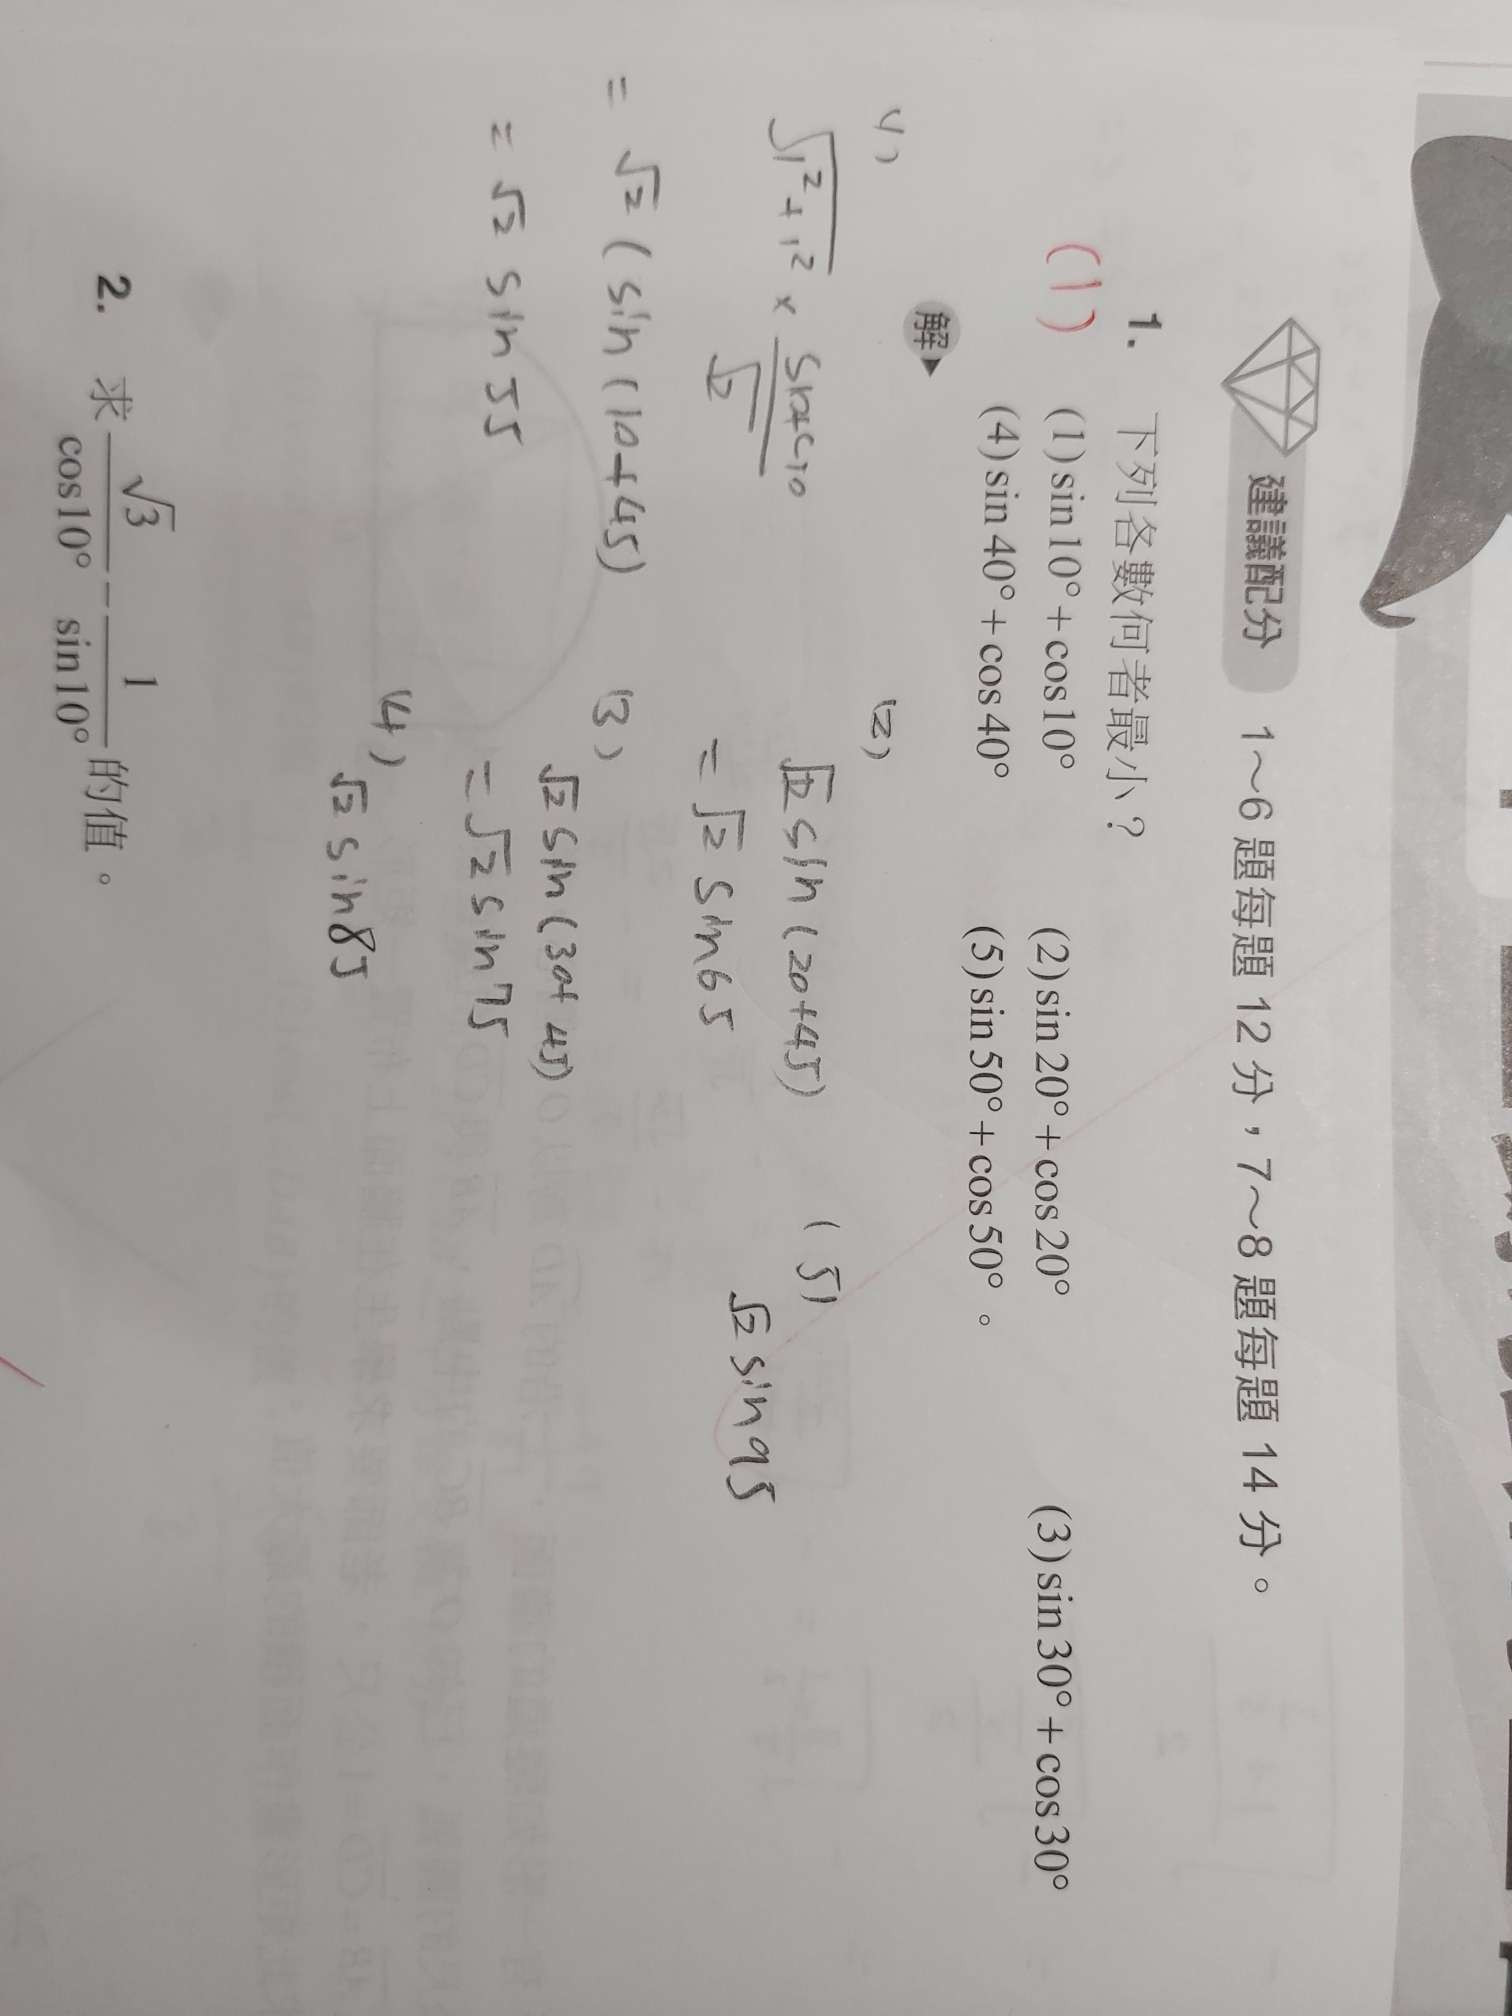 建議配分 1~6 題每題 12 分,7~8 題每題 14 分。
(1) 1. 下列各數何者最小?
(1)sin10°+cos10° (2)sin20°+cos20° (3)sin30°+cos30°
(4)sin40°+cos40° (5)sin50°+cos50°。
解▶
(1)
√(1²+1²) ×
= √2 (sin(10+45)
= √2 sin55
(2)
√2 sin(20+45)
= √2 sin65
(3)
√2 sin(30+45)
= √2 sin75
(4)
√2 sin85
(5)
√2 sin95
2. 求 √3/cos10° − 1/sin10° 的值。